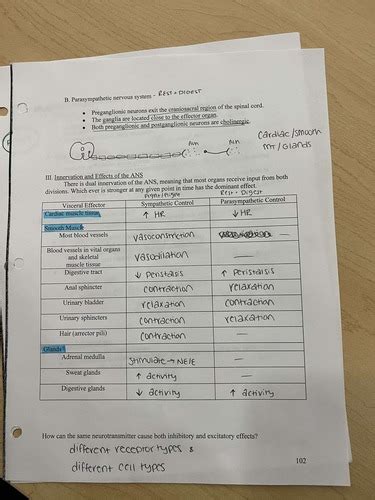 B. Parasympathetic nervous system - REST + DIGEST
• Preganglionic neurons exit the craniosacral region of the spinal cord.
• The ganglia are located close to the effector organ.
• Both preganglionic and postganglionic neurons are cholinergic.
Cardiac/smooth
mt/Glands
III. Innervation and Effects of the ANS
There is dual innervation of the ANS, meaning that most organs receive input from both
divisions. Which ever is stronger at any given point in time has the dominant effect.
Rest + Digest
Visceral Effector Sympathetic Control Parasympathetic Control
Cardiac muscle tissue ↑ HR ↓ HR
Smooth Muscle
Most blood vessels vasoconstriction —
Blood vessels in vital organs
and skeletal
muscle tissue vasodilation —
Digestive tract ↓ peristalsis ↑ peristalsis
Anal sphincter contraction relaxation
Urinary bladder relaxation contraction
Urinary sphincters contraction relaxation
Hair (arrector pili) contraction —
Glands
Adrenal medulla stimulate → NE/E —
Sweat glands ↑ activity —
Digestive glands ↓ activity ↑ activity
How can the same neurotransmitter cause both inhibitory and excitatory effects?
different receptor types &
different cell types
102